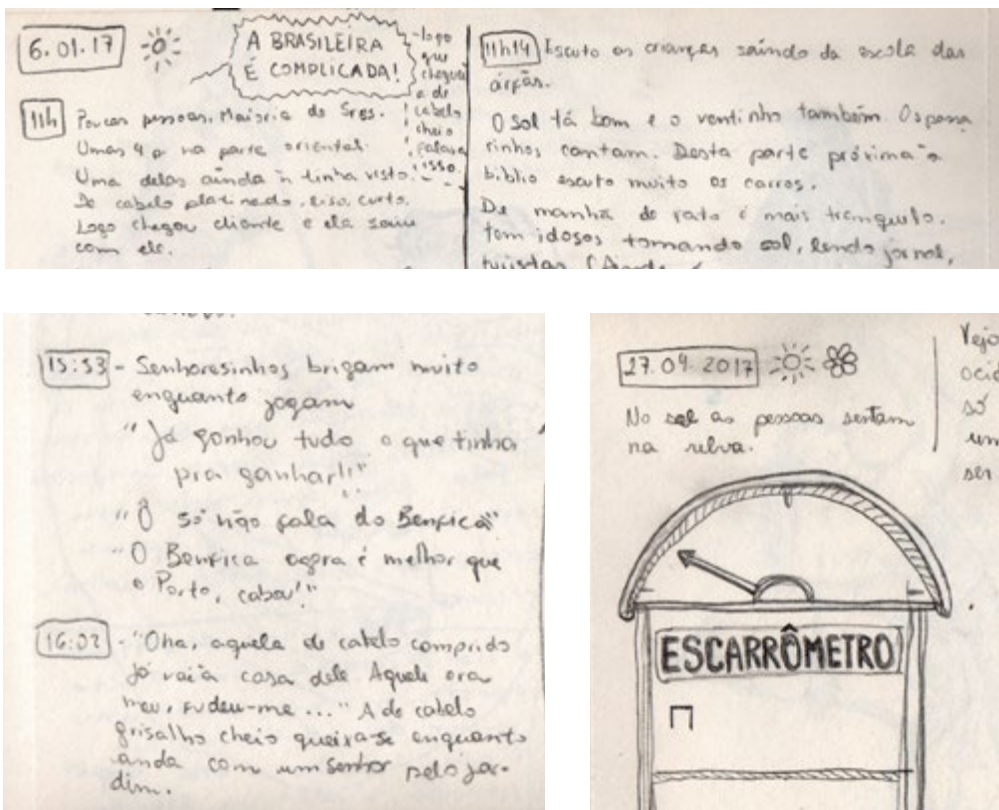 6.01.17
A BRASILEIRA
É COMPLICADA!
- logo
que
chegou
a de
cabelo
cheio
falava
isso.
11h
Poucas pessoas. Maioria de Sres.
Umas 4 p na parte oriental.
Uma delas ainda ñ tinha visto.
De cabelo platinado, liso, curto.
Logo chegou cliente e ela saiu
com ele.
11h14 Escuto as crianças saindo da escola das
órfãs.
O sol tá bom e o ventinho também. Os passa
rinhos cantam. Desta parte próxima à
biblio escuto muito os carros.
De manhã de fato é mais tranquilo.
tem idosos tomando sol, lendo jornal,
turistas
15:53 - Senhoresinhos brigam muito
enquanto jogam
"Já ganhou tudo o que tinha
pra ganhar!!"
"Ô só não fala do Benfica"
"O Benfica agora é melhor que
o Porto, cabou!"
16:02 - "Oha, aquela de cabelo comprido
já vai à casa dele Aquele era
meu, fudeu-me ..." A de cabelo
grisalho cheio queixa-se enquanto
anda com um senhor pelo jar-
dim.
27.04.2017
No sol as pessoas sentam
na relva.
Vejo
só
um
ser
ESCARRÔMETRO